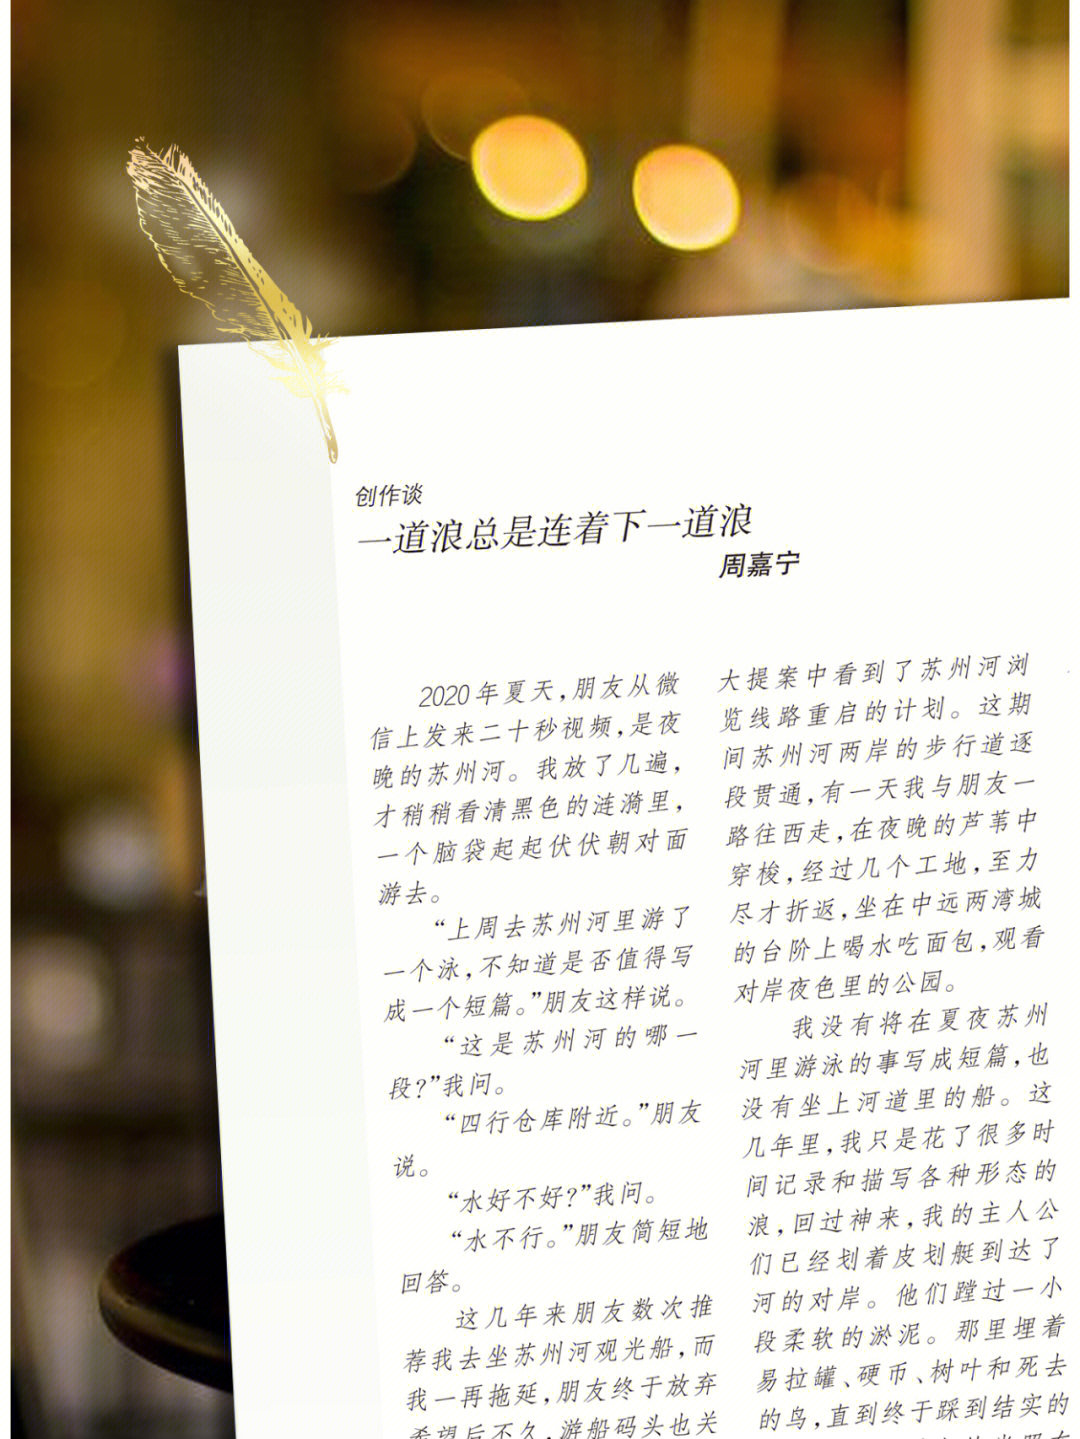 创作谈
一道浪总是连着下一道浪
周嘉宁
2020年夏天，朋友从微
信上发来二十秒视频，是夜
晚的苏州河。我放了几遍，
才稍稍看清黑色的涟漪里，
一个脑袋起起伏伏朝对面
游去。
“上周去苏州河里游了
一个泳，不知道是否值得写
成一个短篇。”朋友这样说。
“这是苏州河的哪一
段？”我问。
“四行仓库附近。”朋友
说。
“水好不好？”我问。
“水不行。”朋友简短地
回答。
这几年来朋友数次推
荐我去坐苏州河观光船，而
我一再拖延，朋友终于放弃
希望后不久，游船码头也关
大提案中看到了苏州河浏
览线路重启的计划。这期
间苏州河两岸的步行道逐
段贯通，有一天我与朋友一
路往西走，在夜晚的芦苇中
穿梭，经过几个工地，至力
尽才折返，坐在中远两湾城
的台阶上喝水吃面包，观看
对岸夜色里的公园。
我没有将在夏夜苏州
河里游泳的事写成短篇，也
没有坐上河道里的船。这
几年里，我只是花了很多时
间记录和描写各种形态的
浪，回过神来，我的主人公
们已经划着皮划艇到达了
河的对岸。他们蹚过一小
段柔软的淤泥。那里埋着
易拉罐、硬币、树叶和死去
的鸟，直到终于踩到结实的